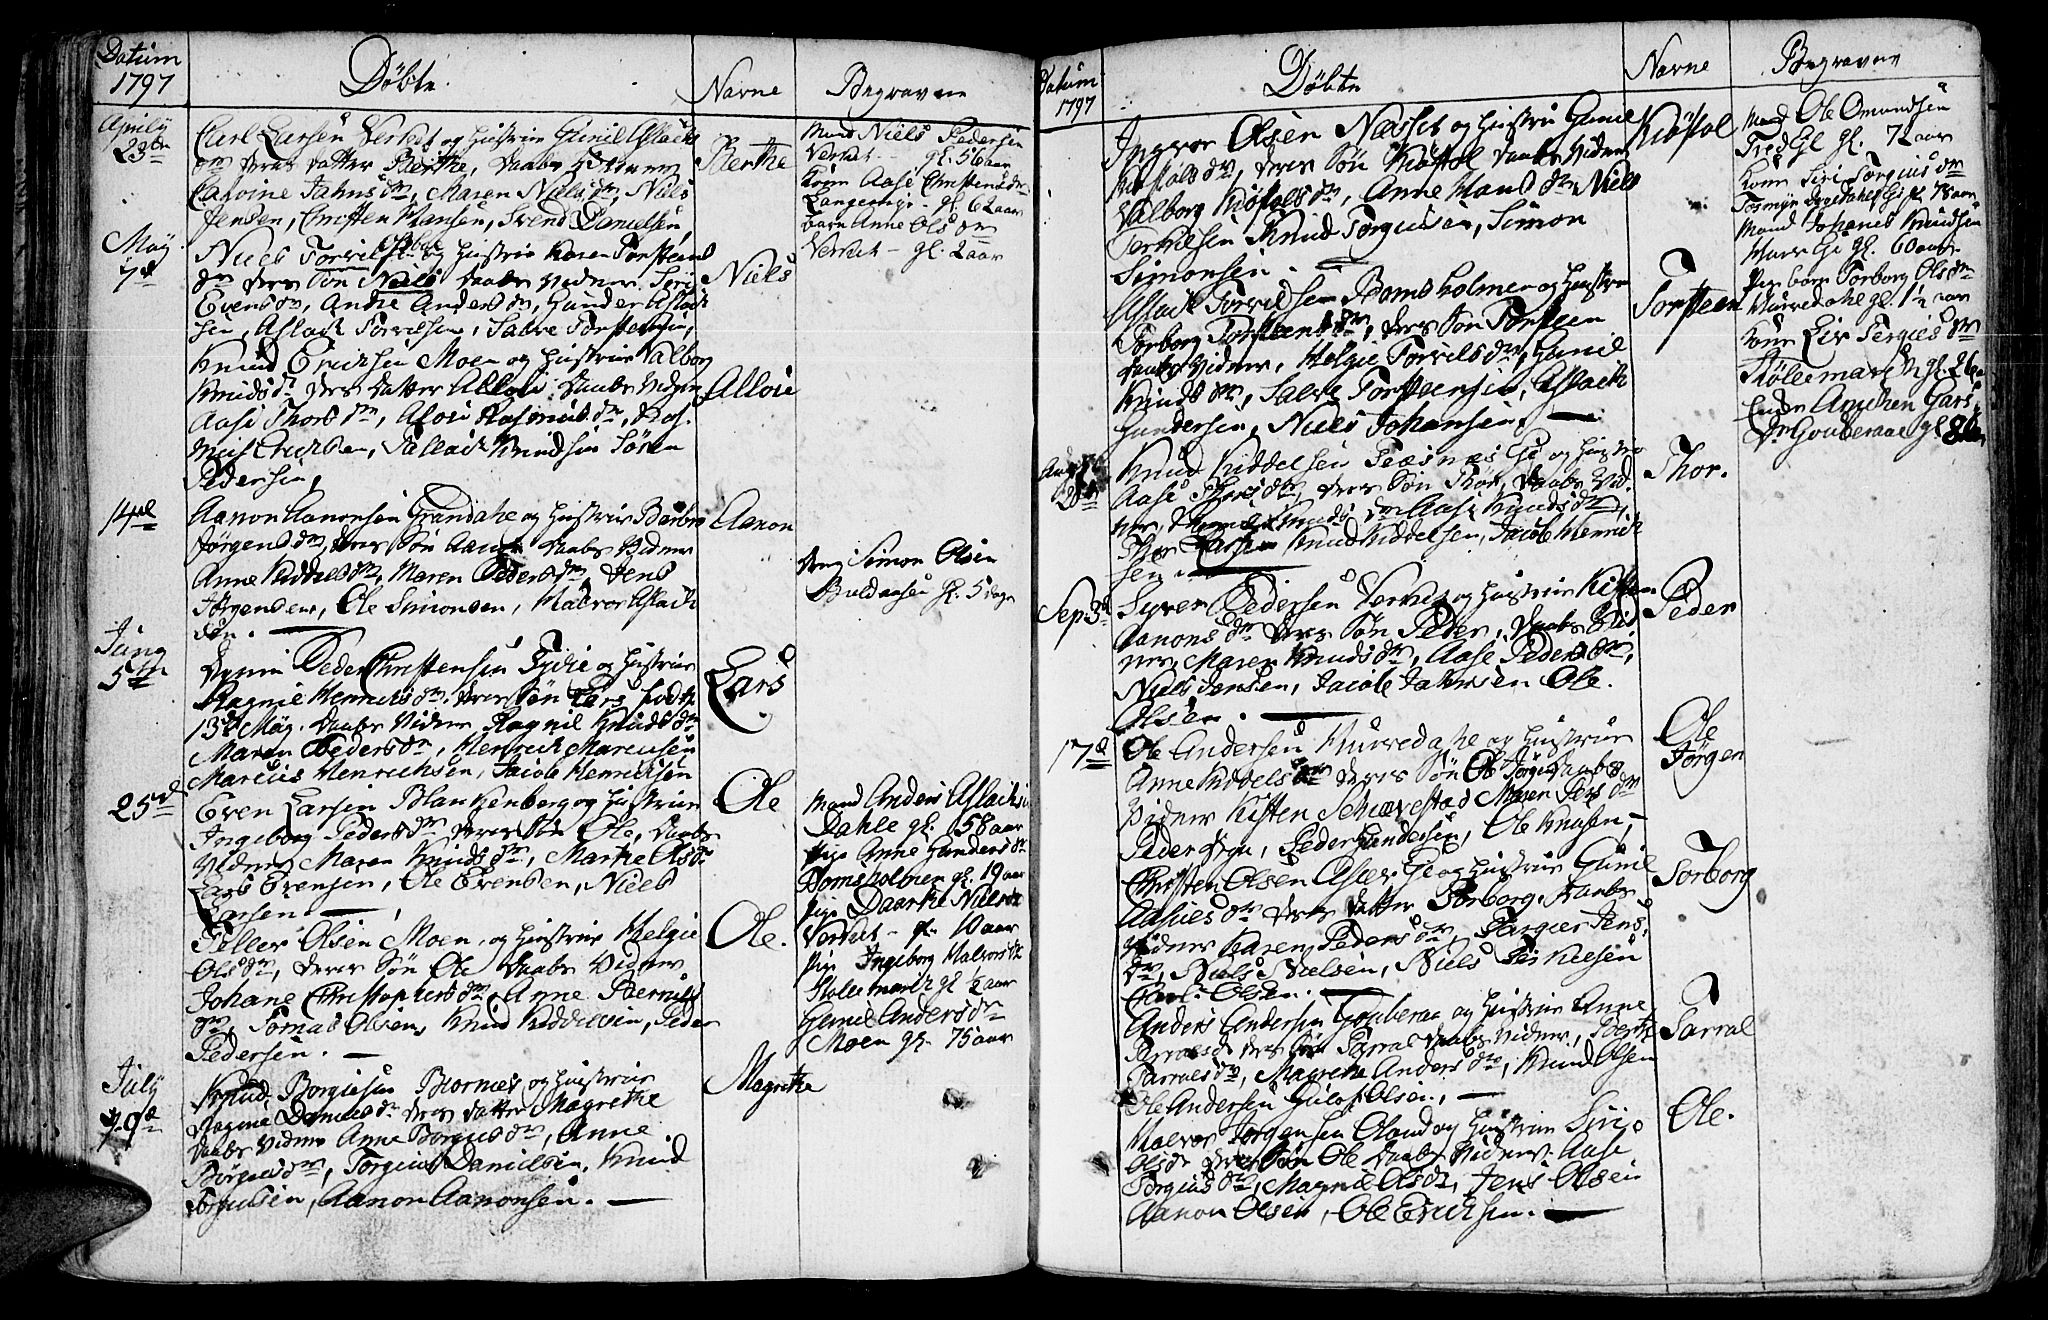 Datum
1797
Døbte
Navne
Begravne
Aprily
23de
Carl Larsen Verket og Hustrue Gunil Aslachs
dtr deres datter Berthe, Daabs Vidner
Catrine Jahns dtr, Maren Niels dtr, Niels
Jensen, Christen Hansen, Svend Danielsen,
Berthe
Mand Niels Pedersen
Verket - gl. 56 aar
Kone Aase Christens dtr
Langemyr - gl. 62 aar
barn Anne Ols dtr
Verket - gl. 2 aar
May
7d
Niels Torvils og Hustrue Karen Torsteens
dtr deres Søn Niels Daabs Vidner Siri
Evens dtr, Andre Anders dtr, Gunder Aslach
sen, Aslack Torvilsen, Salve Torstensen,
Niels
Knud Erichsen Moen og Hustrue Valborg
Knuds dr deres datter Alloie Daabs Vidner
Aase Thors dtr, Aloie Rasmus dtr, Ras
mus Erichsen, Tallack Knudsen Søren
Pedersen,
Alloie
14de
Aanon Aanonsen Grandahe og Hustrue Barbro
Jørgens dtr, deres Søn Aanon Daabs Vidner
Anne Kiddels dtr, Maren Peders dtr Jens
Jørgensen, Ole Simonsen, Halvor Aslach
sen.
Aanon
dreng Simon Olsen
Buldaasen gl. 5 dage
Juny
5te
Peder Christensen Fydie og Hustrue
Ragnie Henrichs dtr. deres Søn Lars født
13de May. Daabs Vidner Ragnil Knuds dtr
Maren Peders dtr, Henrich Marcusen
Marcus Henrichsen, Jacob Henrichsen
Lars
25de
Even Larsen Blankenberg og Hustrue
Ingeborg Peders dtr deres Søn Ole, Daabs
Vidner Maren Knuds dtr, Marthe Ols dr
Lars Evensen, Ole Evensen, Niels
Larsen.
Ole
Mand Anders Aslachsen
Dahle gl. 58 aar
Pige Anne Gunders dtr
Homsholmen gl. 19 aar
Pige Daarthe Niels dtr
Verket - gl. 10 aar
Pige Ingeborg Halvors dtr
Stølemark gl ½ aar
Anders dtr
Moen gl. 75 aar
Teller Olsen Moen, og Hustrue Helgie
Ols dtr, deres Søn Ole Daabs Vidner
Johane Christophers dtr, Anne Bernils
dtr, Tomas Olsen, Knud Kiddelsen, Peder
Pedersen.
Ole.
July
9de
Knud Borgiesen Biornes og Hustrue
Ragnie Daniels dr deres datter Magrethe
Daabs Vidner Anne Borgies dtr, Anne
Børgies dtr, Torgius Danielsen, Knud
Torgiusen, Aanon Aanonsen.
Magrethe
Datum
1797
Døbte
Navne
Begravne
Ingvor Olsen Næsset og Hustrue Gunil
Kiøstols dtr, deres Søn Kiøstol Daabs Vidner
Valborg Kiøstols dtr, Anne Hans dtr Niels
Terkelsen Knud Torgiusen, Simon
Simonsen.
Kiøstol
Mand Ole Omundsen
gl. 72 aar
Kone Siri Torgius dtr
gl 78 aar
Mand Johanes Knudsen
gl. 60 aar
Pige barn Torborg Ols dtr
Murredahe gl 1½ aar
Kone Liv Tergies dtr
Stølemark gl. 26
Enke Anichen Gars
dtr Gouberaae gl 80
Aslack Torvildsen Homsholmen og Hustrue
Torborg Torsteens dtr, deres Søn Torsteen
Daabs Vidner, Helgie Torvils dtr, Gunil
Knuds dtr, Salve Torsteensen, Aslach
Gundersen, Niels Johansen.
Torsteen
Augst
20de
Knud Kiddelsen og Hustrue
Aase Thors dtr, deres Søn Thor, Daabs Vid
ner, Knuds dtr Aase Knuds dtr,
Thor Larsen Knud Kiddelsen, Jacob Henrich
sen.
Thor.
Sep 3d
Syver Pedersen Verket og Hustrue Kisten
Aanons dtr deres Søn Peder, Daabs Vid
ner, Maren Knuds dtr, Aase Peders dtr,
Niels Jensen, Jacob Jahnsen Ole.
Olsen.
Peder
17d
Ole Andersen Murredahe og Hustrue
Anne Kiddels dtr deres Søn Ole Jørgen Daabs
Vidner Kisten Schievestad Maren Peders dtr
Peder Dyn, Peder Gundersen, Ole Knusen,
Ole
Jørgen
Christen Olsen og Hustrue Gunil
dtr deres datter Torborg Daabs
Vidner Karen Peders dtr, Targier Jens
dtr, Niels Nielsen, Niels Terkelsen
Carl. Olsen.
Torborg
Anders Andersen Gouberaae og Hustrue Anne
Tarrals dr deres Søn Tarral Daabs Vidner, Berthe
Tarrals dtr, Magrethe Anders dtr, Knud Olsen
Ole Andersen Olsen,
Tarral
Halvor Jørgensen Oland og Hustrue Siri
Ols dr deres Søn Ole Daabs Vidner. Aase
Torgius dtr, Magnil Ols dr, Jens Olsen
Aanon Olsen, Ole Erichsen.
Ole.